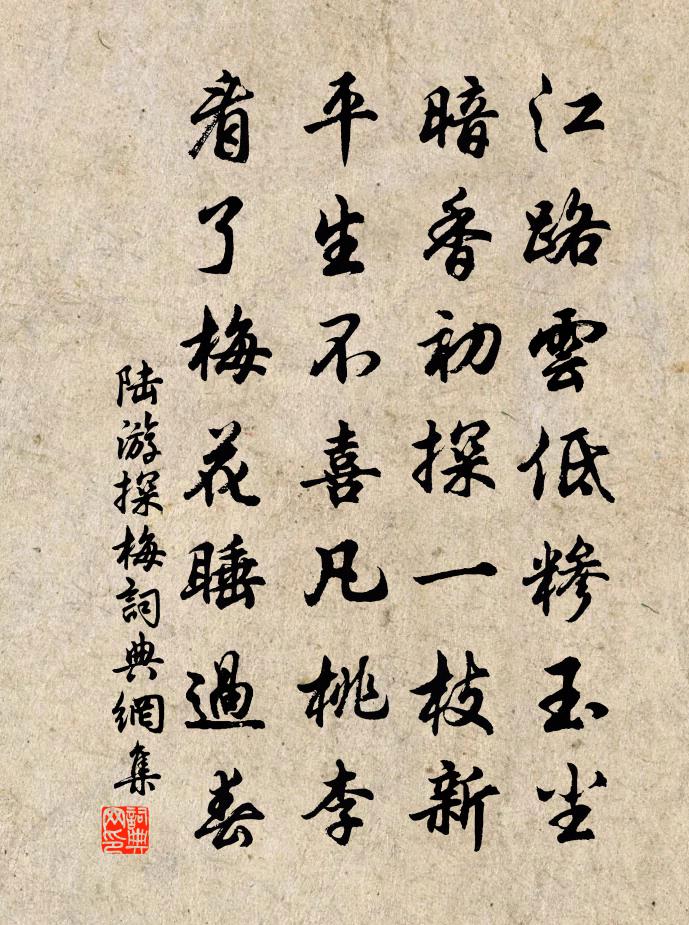 江路雲低糝玉尘
暗香初探一枝新
平生不喜凡桃李
看了梅花睡過春
陆游探梅詞典網集
詞典网印